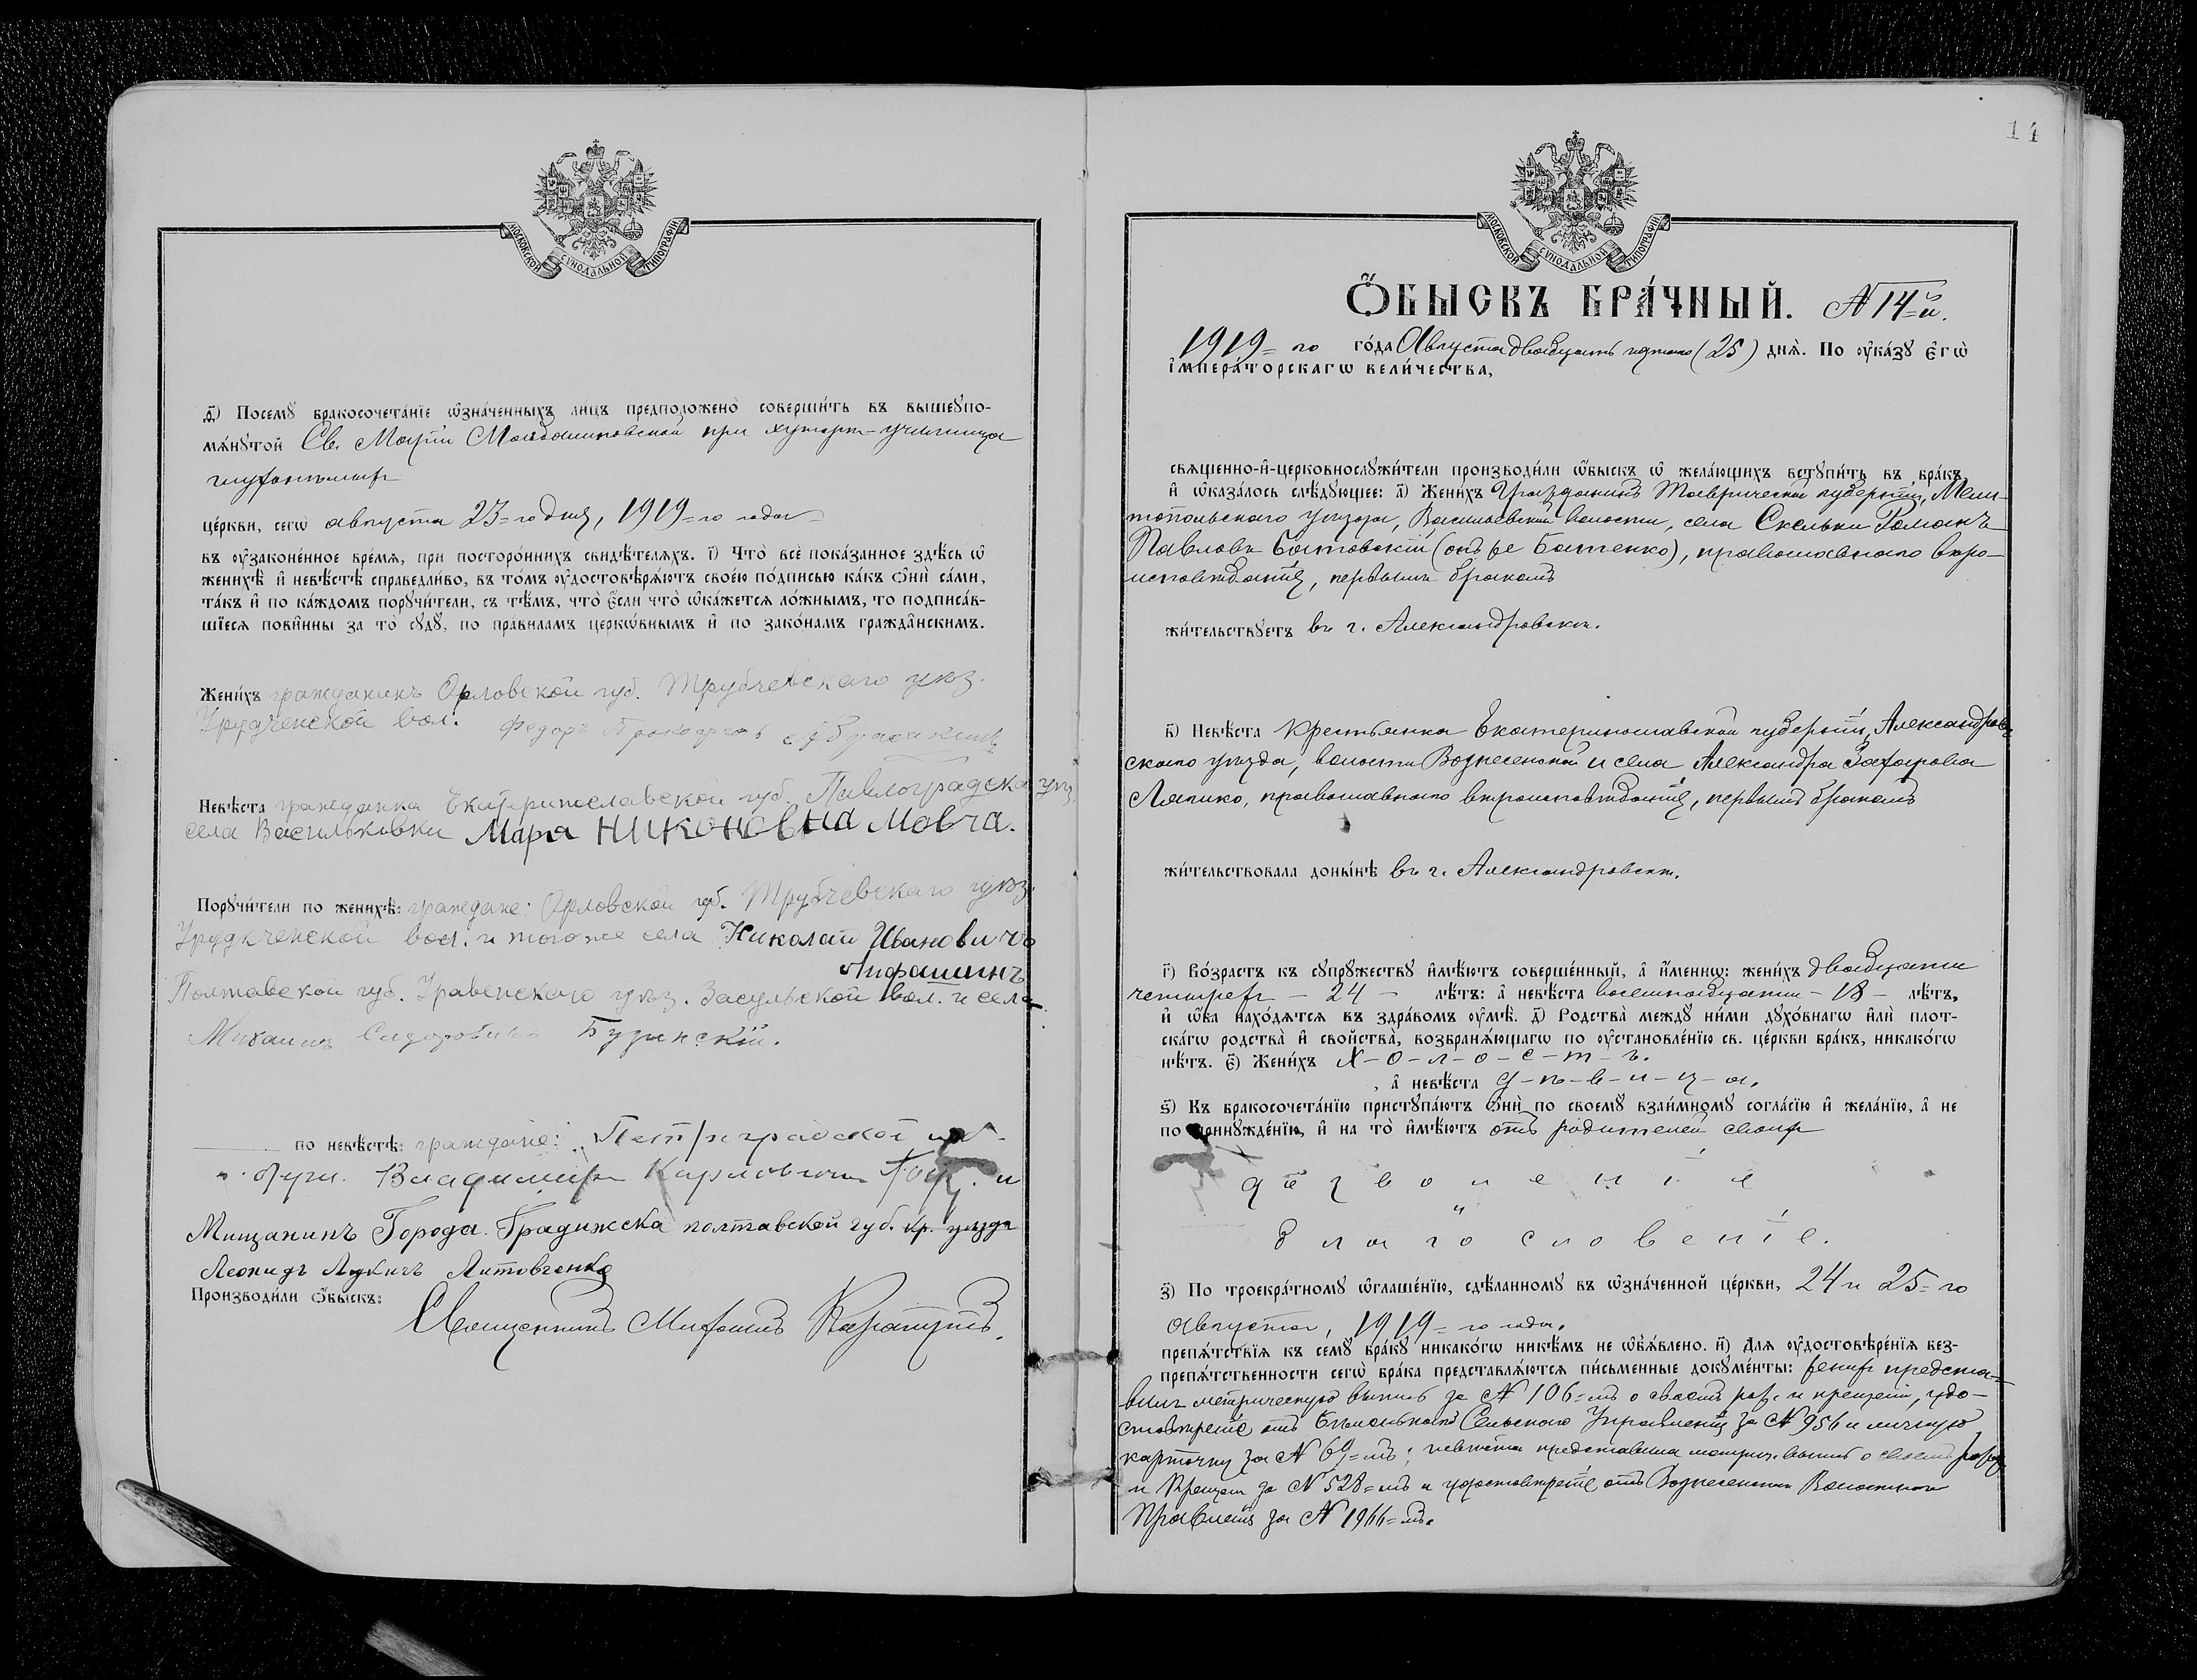 МОСКОВСКОЙ СѴНОДАЛЬНОЙ ТИПОГРАФІИ
ѳ҃) Посемꙋ бракосочета́нїе ѡ҆зна́ченныхъ ли́цъ предположено̀ соверши́ть въ вышеꙋпо-
мѧ́нꙋтой Св. Маріи Магдалиновской при хуторѣ-училища
глухонѣмыхъ
це́ркви, сегѡ̀ августа 23=го дня, 1919=го года
въ оу҆зако́не́нное вре́мѧ, при посторо́ннихъ свидѣ́телѧхъ. і҃) Что̀ всѐ пока́занное здѣ́сь ѡ҆
женихѣ̀ и҆ невѣ́стѣ справедли́во, въ то́мъ оу҆достовѣрѧ́ютъ свое́ю по́дписью ка́къ ѻ҆нѝ са́ми,
та́къ и҆ по ка́ждомъ порꙋчи́тели, съ тѣ́мъ, что̀ є҆́сли что̀ ѡ҆ка́жетсѧ ло́жнымъ, то подписа́в-
шїесѧ пови́нны за то̀ сꙋдꙋ̀, по пра́виламъ церкѡ́внымъ и҆ по зако́намъ гражда́нскимъ.
Жени́хъ гражданинъ Орловской губ. Трубчевскаго уѣз.
вол. Федоръ
Невѣ́ста гражданка Екатеринославской губ. Павлоградска уѣз.
села Васильковки Мара НИКОНОВНА Мовча.
Порꙋчи́тели по женихѣ̀: граждане: Орловской губ. Трубчевскаго уѣз.
вол. и тогоже села Николай Ивановичъ
Лифашинъ
Полтавской губ. уѣз. Засульской вол. и села
Михаилъ Сидоровичъ Бузинскій.
по невѣ́стѣ: граждане: Петроградской губ.
Владимиръ Карловичъ и
Мищанинъ Города. Градижска полтавской губ. кр. уѣзда
Леонидъ Лукичъ Литовченко
Производи́ли ѻ҆́быскъ:
Священникъ Михаилъ
14
МОСКОВСКОЙ СѴНОДАЛЬНОЙ ТИПОГРАФІИ
Ѻ҆́БЫСКЪ БРА́ЧНЫЙ. № 14=й.
1919=го го́да Августа двадцать пятаго (25) днѧ̀. По оу҆ка́зꙋ є҆гѡ̀
і҆мпера́торскагѡ вели́чества,
свѧще́нно-и҆-церковнослꙋжи́тели производи́ли ѻ҆́быскъ ѡ҆ жела́ющихъ встꙋпи́ть въ бра́къ,
и҆ ѡ҆каза́лось слѣ́дꙋющее: а҃) Жени́хъ Гражданинъ Таврической губерніи, Мели-
топольскаго уѣзда, Васильевской волости, села Скельки Романъ
Павловъ Батовскій (онъ же Батенко), православнаго вѣро-
исповѣданія, первымъ бракомъ
жи́тельствꙋетъ въ г. Александровскѣ.
в҃) Невѣ́ста Крестьянка Екатеринославской губерніи, Александров-
скаго уѣзда, волости Вознесенской и села Александра Захарова
Ляпико, православнаго вѣроисповѣданія, первымъ бракомъ
жи́тельствовала доны́нѣ въ г. Александровскѣ.
г҃) Во́зрастъ къ сꙋпрꙋ́жествꙋ и҆мѣ́ютъ соверше́нный, а҆ и҆́меннѡ: жени́хъ двадцати
четырехъ - 24 - лѣ́тъ: а҆ невѣ́ста восемнадцати - 18 - лѣ́тъ,
и҆ ѻ҆́ба нахо́дѧтсѧ въ здра́вомъ оу҆мѣ̀. д҃) Родства̀ междꙋ̀ ни́ми дꙋхо́внагѡ и҆лѝ плот-
ска́гѡ родства̀ и҆ сво́йства̀, возбранѧ́ющагѡ по оу҆становле́нїю св. це́ркви бра́къ, никако́гѡ
нѣ́тъ. є҃) Жени́хъ Х-о-л-о-с-т-ъ.
, а҆ невѣ́ста д-ѣ-в-и-ц-а.
ѕ҃) Къ бракосочета́нїю пристꙋпа́ютъ ѻ҆нѝ по своемꙋ̀ взаи́мномꙋ согла́сїю и҆ жела́нїю, а҆ не
по принꙋжде́нїю, и҆ на то̀ и҆мѣ́ютъ отъ родителей своихъ
д о з в о л е н і е
и
б л а г о с л о в е н і е.
з҃) По троекра́тномꙋ ѡ҆глаше́нїю, сдѣ́ланномꙋ въ ѡ҆зна́ченной це́ркви, 24 и 25=го
августа, 1919=го года.
препѧ́тствїѧ къ семꙋ̀ бра́кꙋ никако́гѡ никѣ́мъ не ѡ҆б̾ѧ́влено. и҃) Длѧ оу҆достовѣре́нїѧ без-
препѧ́тственности сегѡ̀ бра́ка представлѧ́ютсѧ пи́сьменные докꙋме́нты: жених предста-
вилъ метрическую выпись за № 106=мъ о своемъ рожд. и крещеніи, удо-
стовѣреніе отъ Сельскаго Управленія за № 956 и личную
карточку за № 69=мъ; невѣста представила метрич. выпись о своемъ рожд.
и Крещен. за № 528=мъ и удостовѣреніе отъ Вознесенскаго Волостного
Правленія за № 1966=мъ.